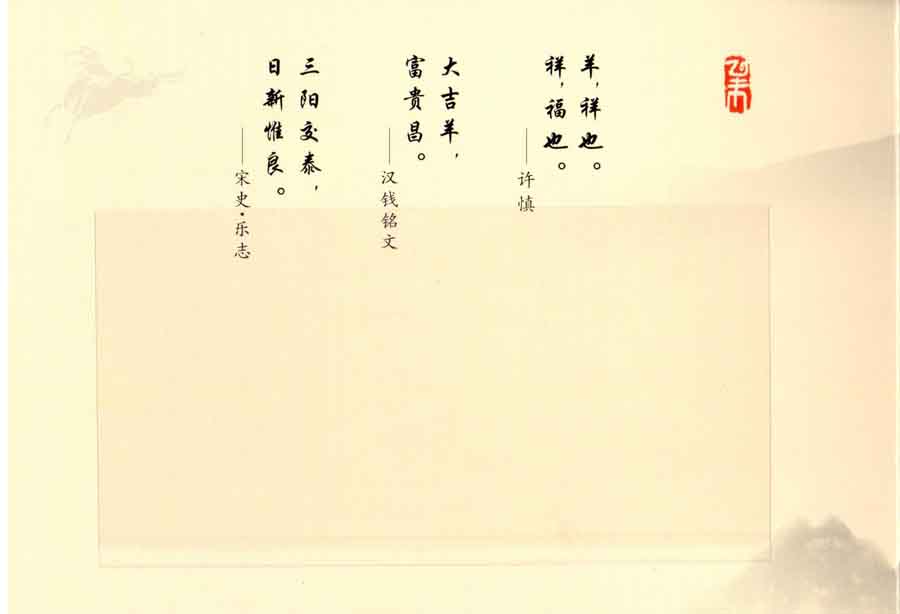 羊，祥也。
祥，福也。
——许慎
大吉羊，
富贵昌。
——汉钱铭文
三阳交泰，
日新惟良。
——宋史·乐志